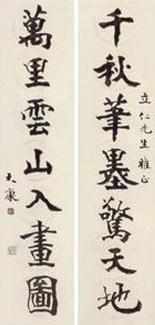 千秋筆墨驚天地
立仁先生雅正
萬里雲山入畫圖